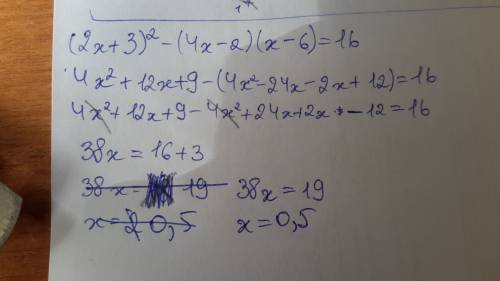 (2x+3)² - (4x-2)(x-6)=16
4x²+12x+9-(4x²-24x-2x+12)=16
4x²+12x+9-4x²+24x+2x-12=16
38x = 16+3
38x = 19 38x = 19
x = 0,5 x = 0,5